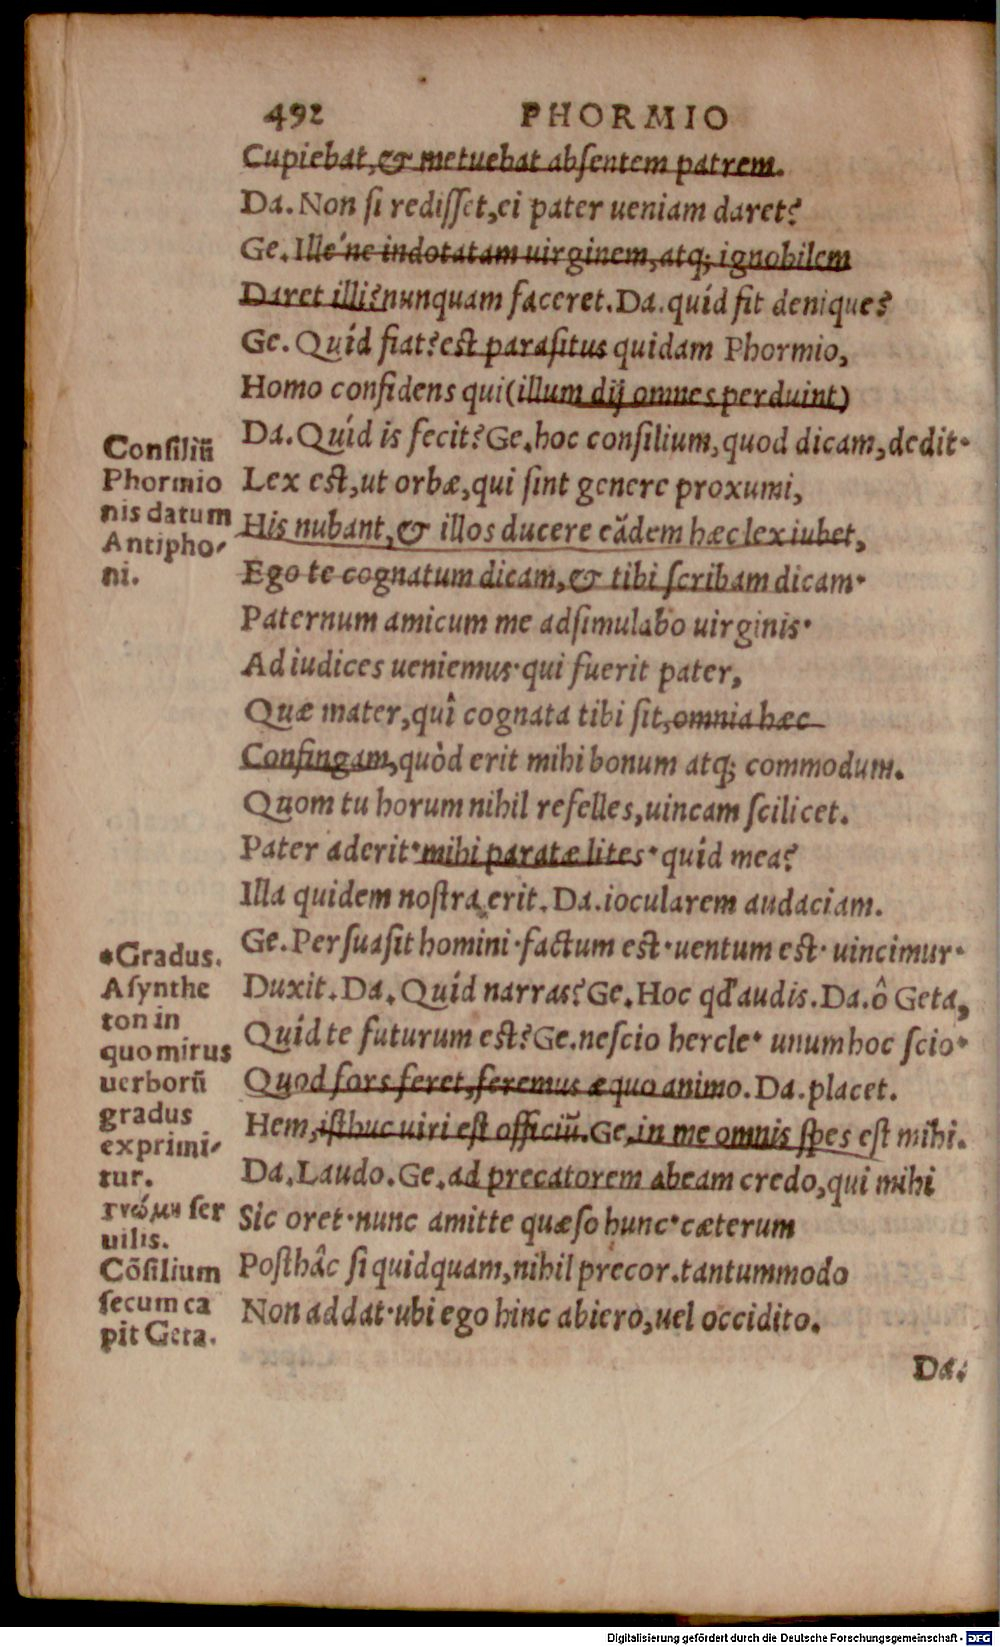 492 PHORMIO
Cupiebat, & metuebat absentem patrem.
Da. Non si redisset, ei pater ueniam daret?
Ge. Ille'ne indotatam uirginem, atq; ignobilem
Daret illi? nunquam faceret. Da. quíd fit denique?
Ge. Quíd fiat? est parasitus quidam Phormio,
Homo confidens qui (illum dij omnes perduint)
Da. Quíd is fecit? Ge. hoc consilium, quod dicam, dedit·
Lex est, ut orbæ, qui sint genere proxumi,
His nubant, & illos ducere eădem hæc lex iubet,
Ego te cognatum dicam, & tibi scribam dicam·
Paternum amicum me adsimulabo uirginis·
Ad iudices ueniemus· qui fuerit pater,
Quæ mater, quî cognata tibi sit, omnia hæc
Confingam, quòd erit mihi bonum atq; commodum.
Quom tu horum nihil refelles, uincam scilicet.
Pater aderit· mihi paratæ lites· quíd mea?
Illa quidem nostra erit. Da. iocularem audaciam.
Ge. Persuasit homini· factum est· uentum est· uincimur·
Duxit. Da. Quíd narras? Ge. Hoc qđ audis. Da. ô Geta,
Quíd te futurum est? Ge. nescio hercle· unum hoc scio·
Quod fors feret, feremus æquo animo. Da. placet.
Hem, isthuc uiri est officiũ. Ge. in me omnis spes est mihi.
Da. Laudo. Ge. ad precatorem abeam credo, qui mihi
Sic oret· nunc amitte quæso hunc· cæterum
Posthâc si quidquam, nihil precor. tantummodo
Non addat· ubi ego hinc abiero, uel occidito.
Da.
Consiliũ
Phormio
nis datum
Antipho-
ni.
*Gradus.
Asynthe
ton in
quo mirus
uerborũ
gradus
exprimi-
tur.
γνώμη ser
uilis.
Cõsilium
secum ca
pit Geta.
Digitalisierung gefördert durch die Deutsche Forschungsgemeinschaft - DFG